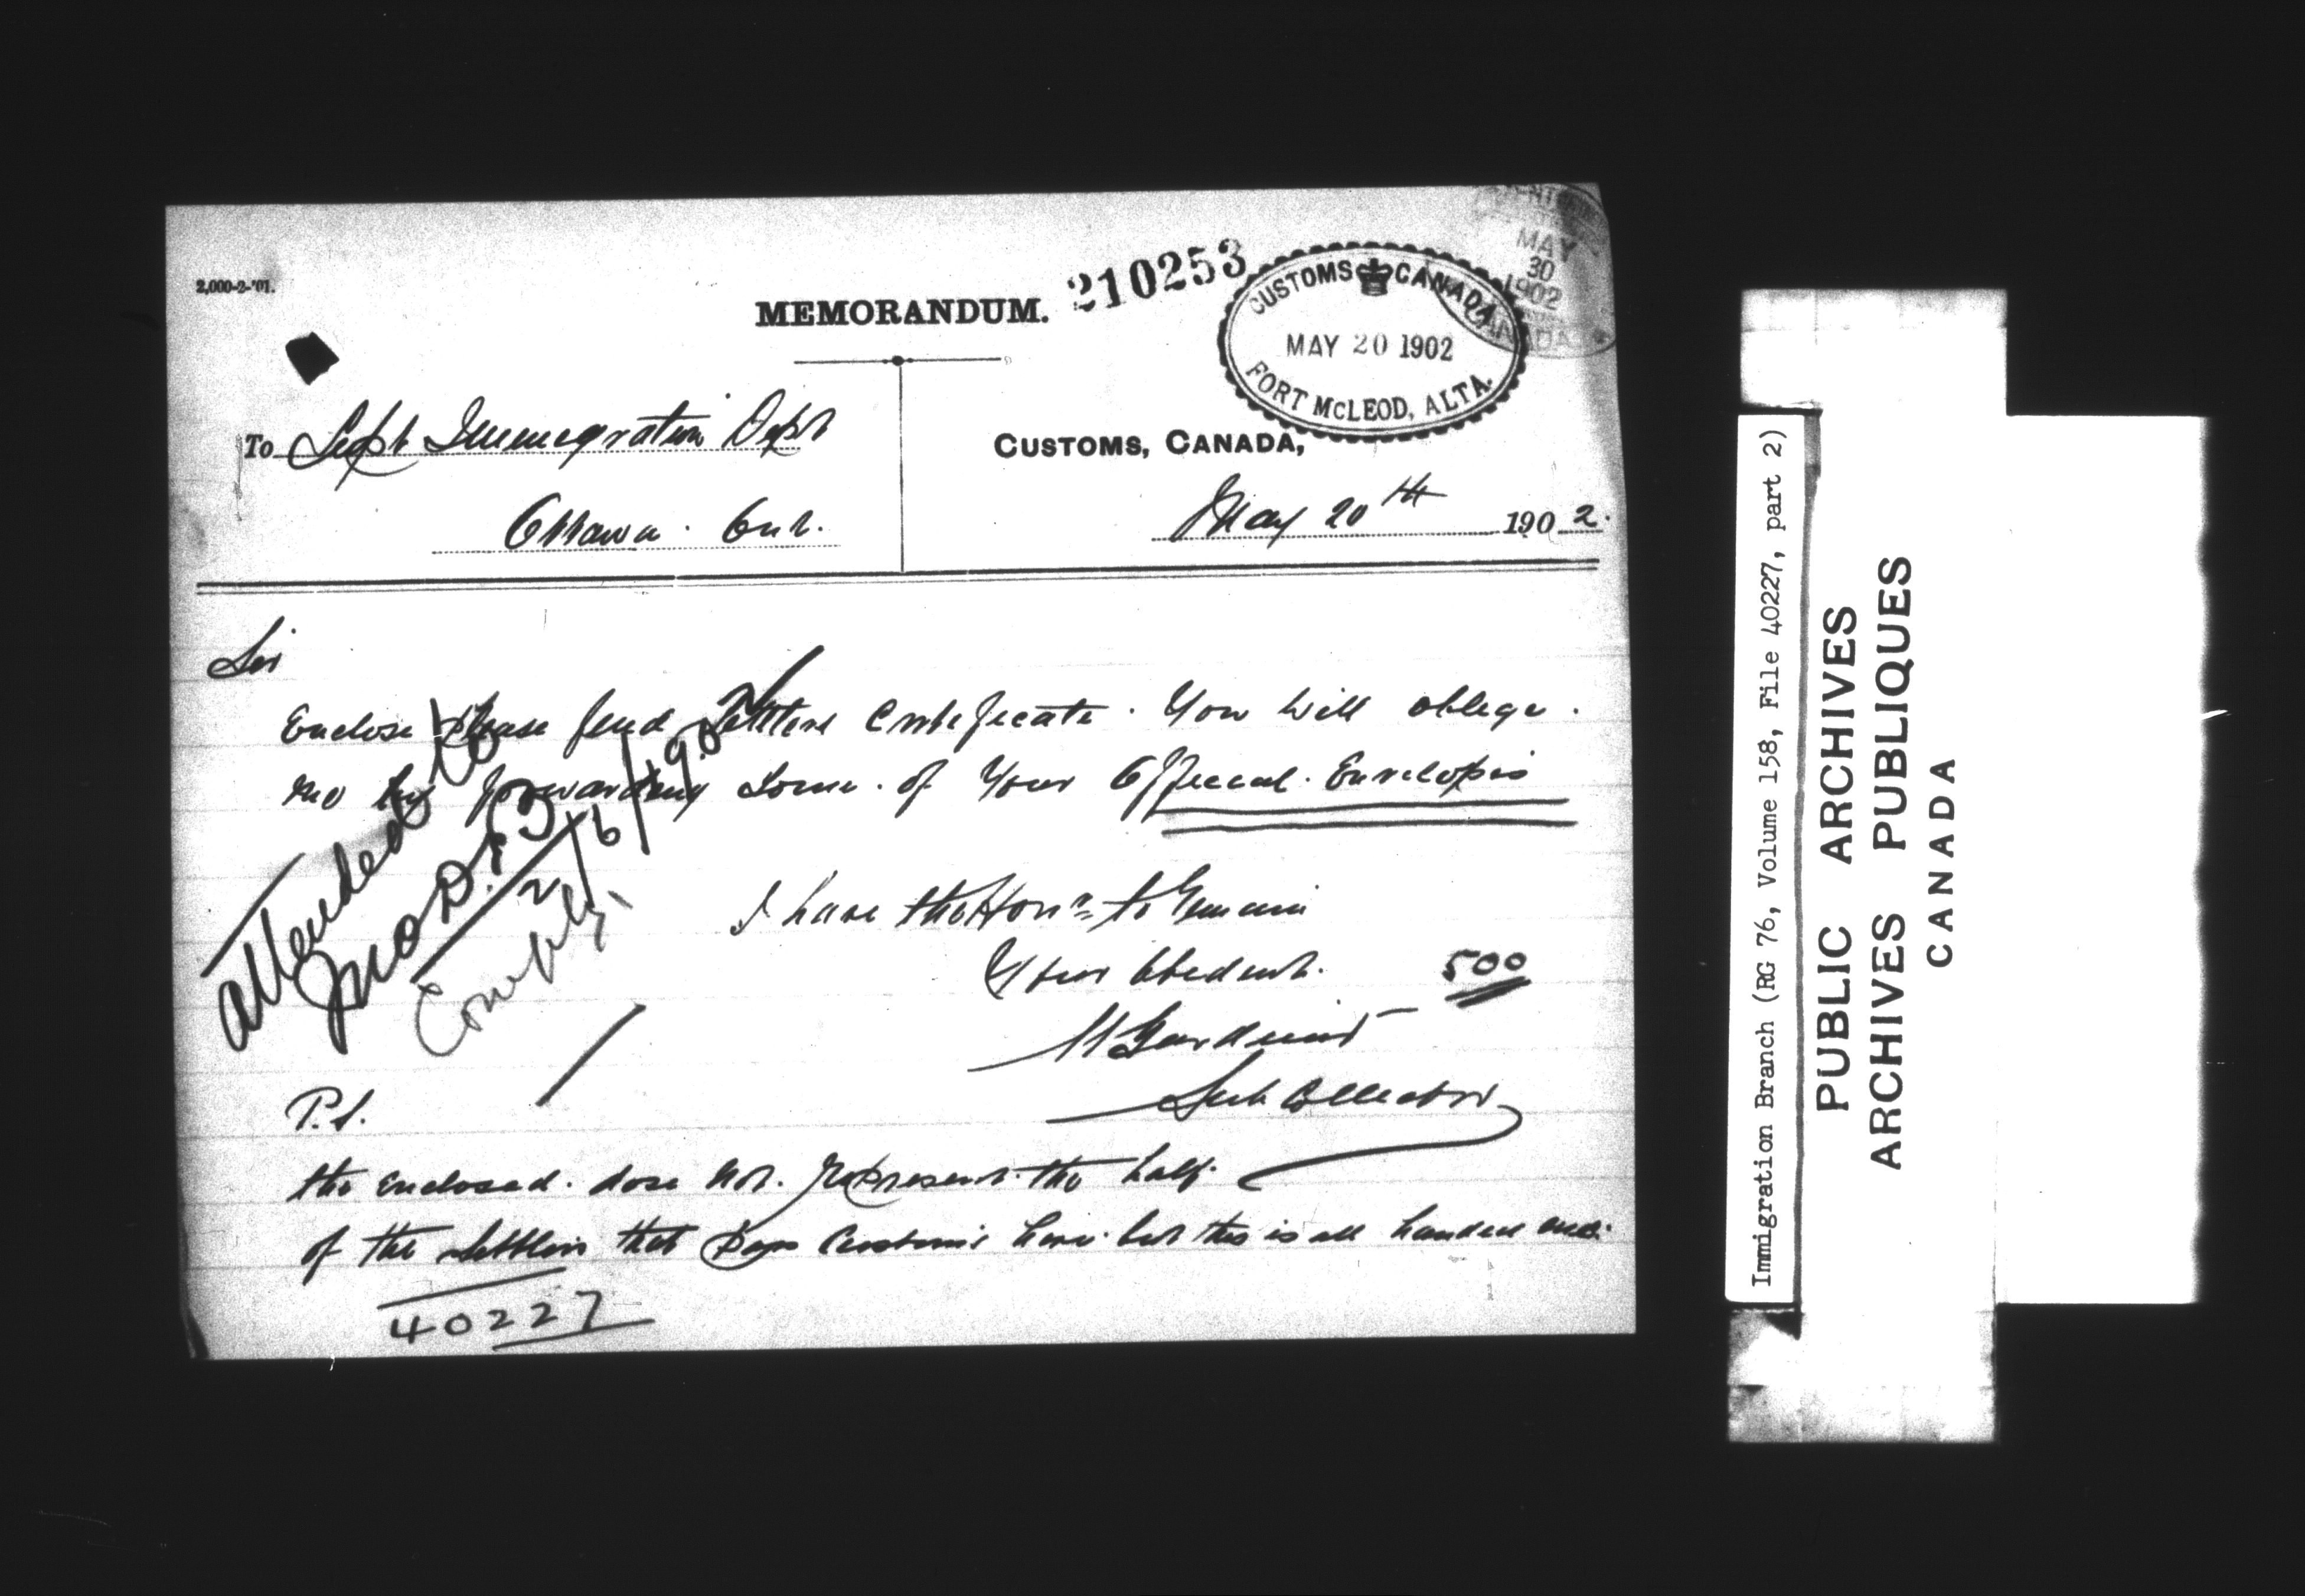 2,000-2-'01.
MEMORANDUM.
210253
CUSTOMS CANADA
MAY 20 1902
FORT McLEOD, ALTA.
MAY
30
1902
CANADA
To Supt Immigration Dept
Ottawa. Ont.
CUSTOMS, CANADA,
May 20th 1902.
Sir
Enclose Please find Settlers Certificate. You will oblige.
me by forwarding Some. of Your Official. Envelopes
I have the Honr to Remain
Your Obedient.
500
Gardiner
Sub Collector
P.S.
the Enclosed. dose Not. Represent. the half.
of the Settlers that Pays Customs here. but this is all handed me.
40227
attended to
2/6/1902
Comply.
Immigration Branch (RG 76, Volume 158, File 40227, part 2)
PUBLIC ARCHIVES
ARCHIVES PUBLIQUES
CANADA